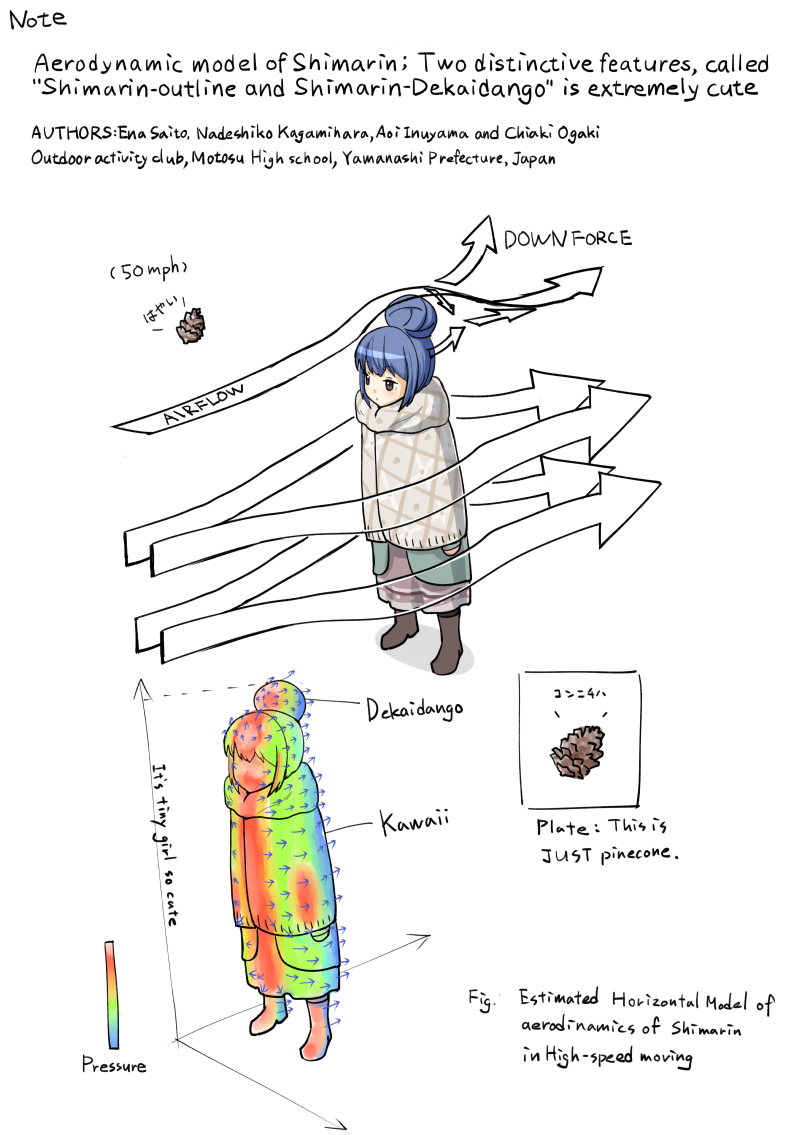 Note
Aerodynamic model of Shimarin; Two distinctive features, called
"Shimarin-outline and Shimarin-Dekaidango" is extremely cute
AUTHORS:Ena Saito, Nadeshiko Kagamihara, Aoi Inuyama and Chiaki Ogaki
Outdoor activity club, Motosu High school, Yamanashi Prefecture, Japan
DOWNFORCE
(50mph)
はやい
AIRFLOW
Dekaidango
コンニチハ
It's tiny girl so cute
Kawaii
Plate: This is
JUST pinecone.
Pressure
Fig. Estimated Horizontal Model of
aerodinamics of Shimarin
in High-speed moving